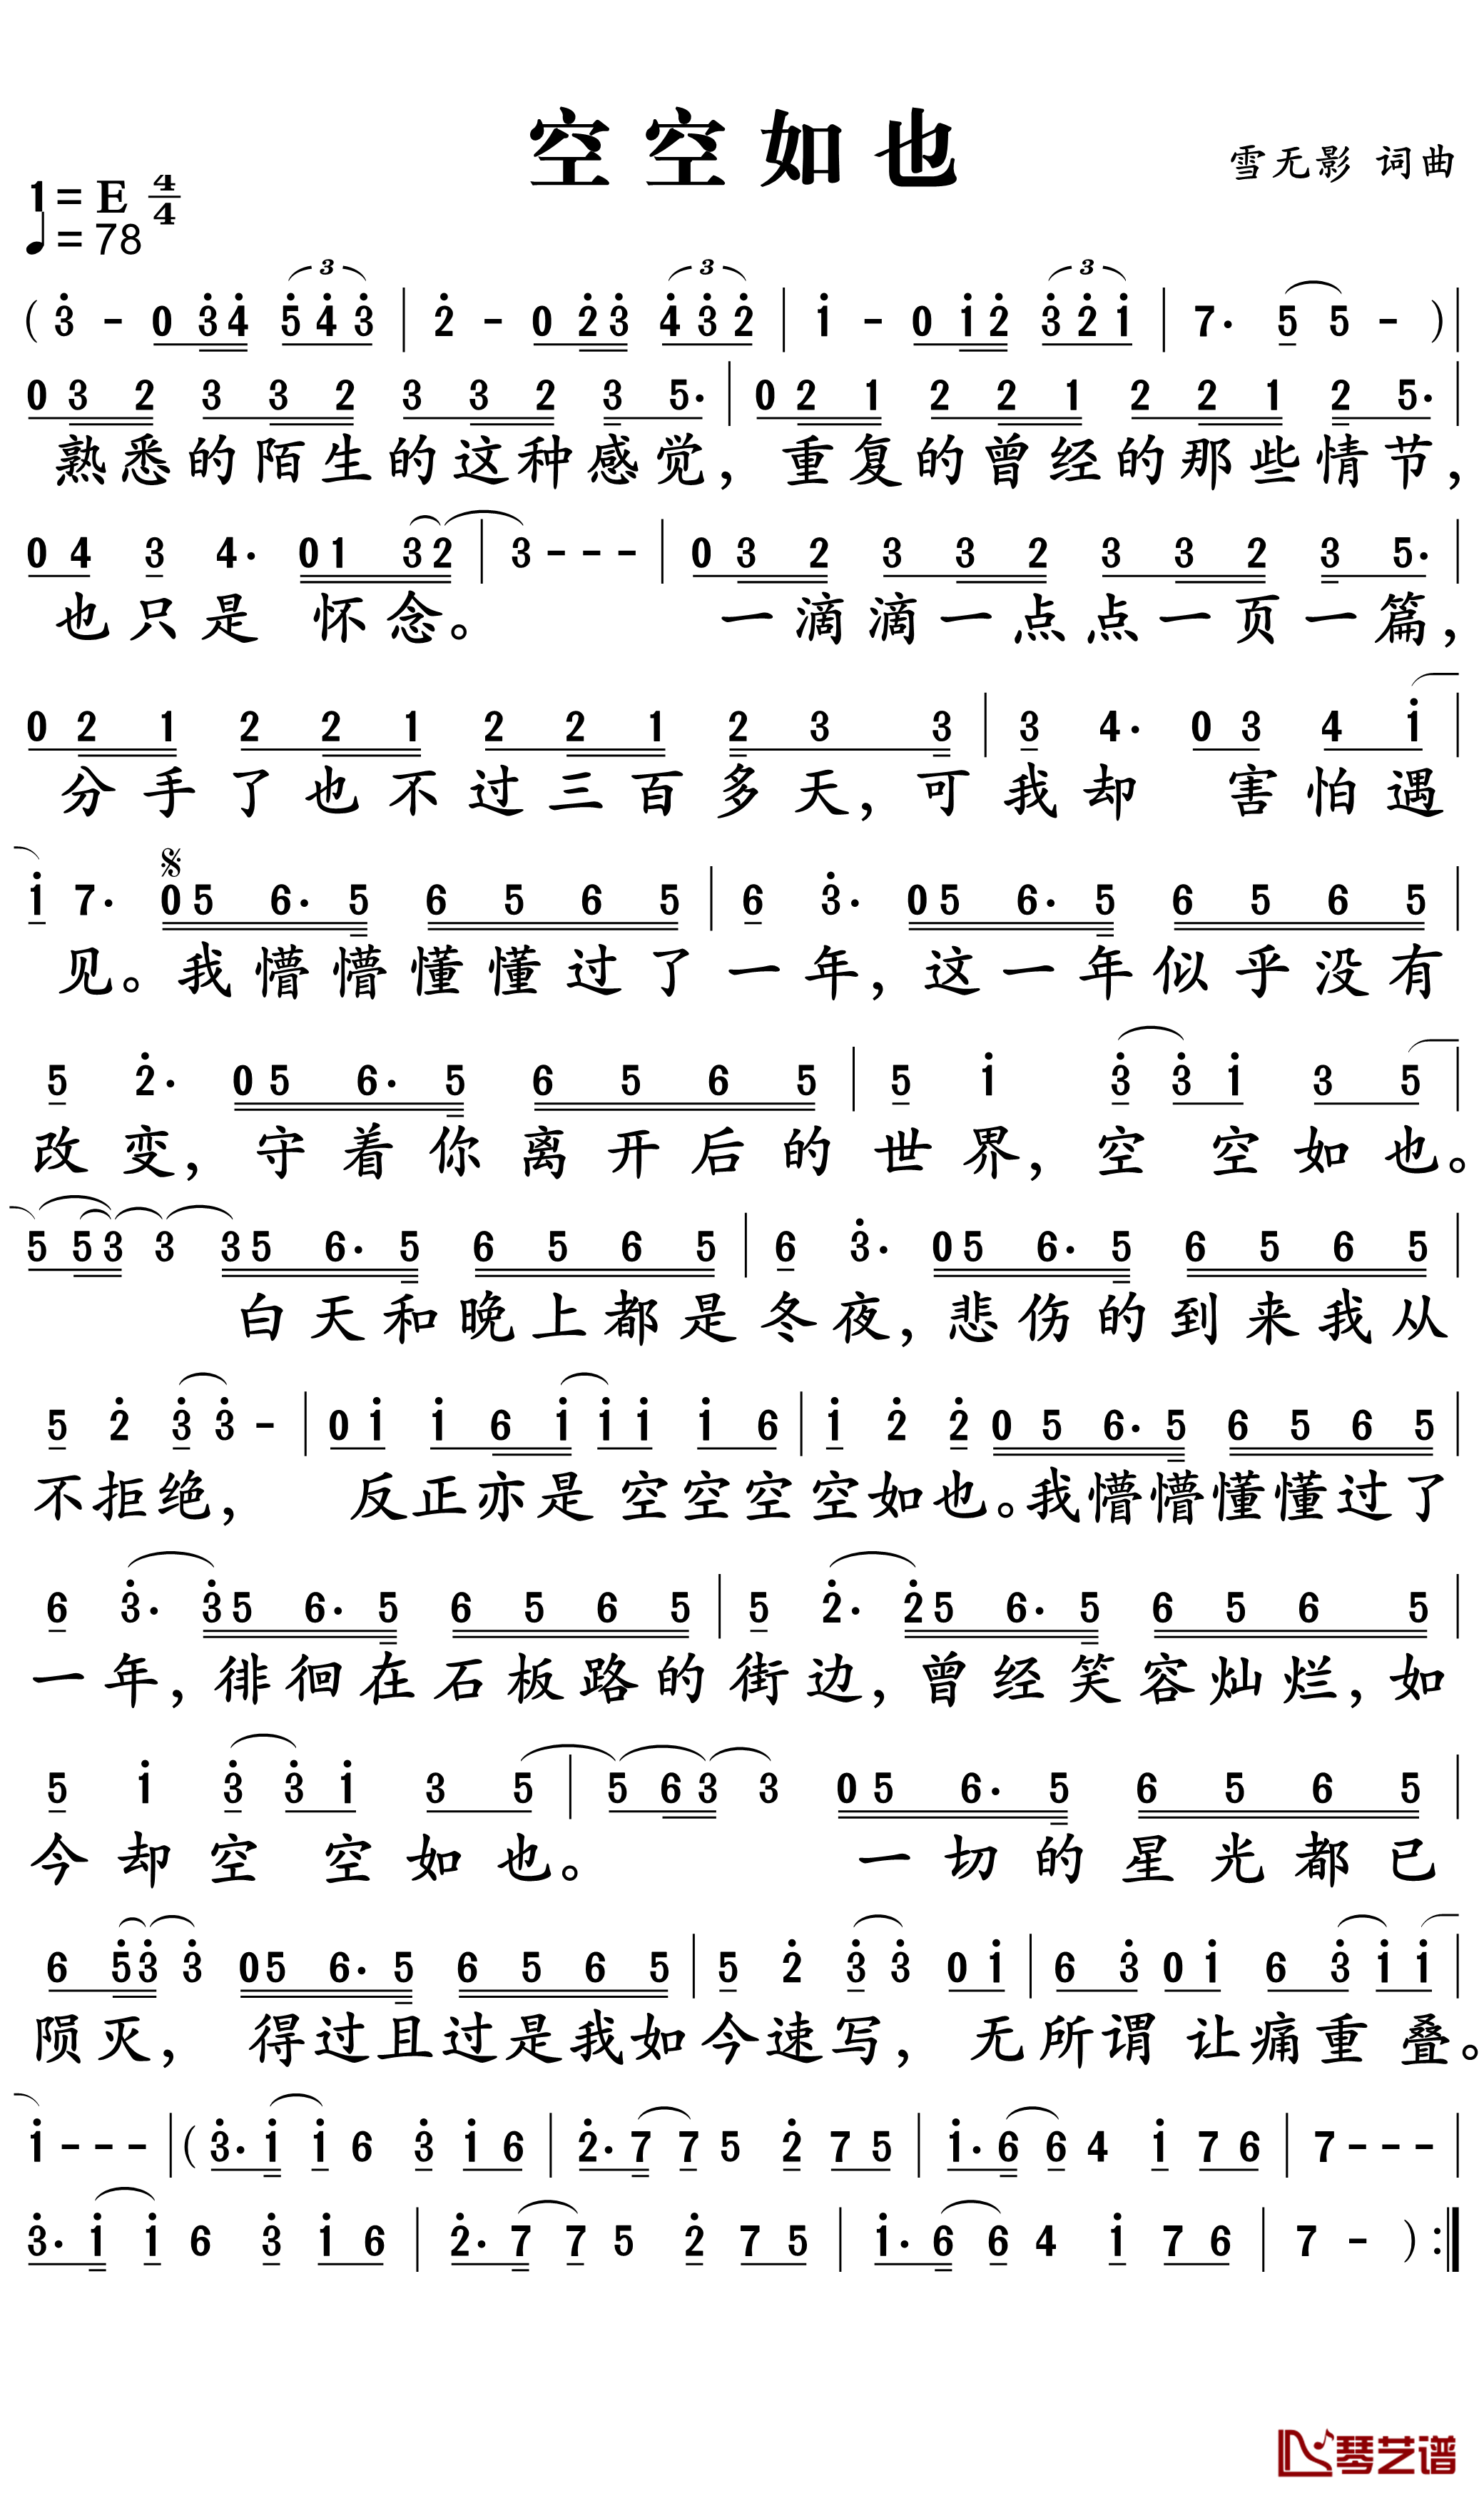 空空如也
雪无影 词曲
1=E 4/4
♩=78
( 3̇ - 0 3̇4̇ 5̇4̇3̇ | 2̇ - 0 2̇3̇ 4̇3̇2̇ | 1̇ - 0 1̇2̇ 3̇2̇1̇ | 7· 5 5 - ) |
0 3 2 3 3 2 3 3 2 3 5· | 0 2 1 2 2 1 2 2 1 2 5· |
熟悉的陌生的这种感觉,重复的曾经的那些情节,
0 4 3 4· 0 1 3 2 | 3 - - - | 0 3 2 3 3 2 3 3 2 3 5· |
也只是怀念。 一滴滴一点点一页一篇,
0 2 1 2 2 1 2 2 1 2 3 3 | 3 4· 0 3 4 1̇ |
分手了也不过三百多天,可我却害怕遇
1̇ 7· 0 5 6· 5 6 5 6 5 | 6 3̇· 0 5 6· 5 6 5 6 5 |
见。我懵懵懂懂过了一年,这一年似乎没有
5 2̇· 0 5 6· 5 6 5 6 5 | 5 1̇ 3̇ 3̇ 1̇ 3 5 |
改变,守着你离开后的世界,空空如也。
5 5 3 3 3 5 6· 5 6 5 6 5 | 6 3̇· 0 5 6· 5 6 5 6 5 |
白天和晚上都是冬夜,悲伤的到来我从
5 2̇ 3̇ 3̇ - | 0 1̇ 1̇ 6 1̇ 1̇ 1̇ 1̇ 6 | 1̇ 2̇ 2̇ 0 5 6· 5 6 5 6 5 |
不拒绝, 反正亦是空空空空如也。我懵懵懂懂过了
6 3̇· 3̇ 5 6· 5 6 5 6 5 | 5 2̇· 2̇ 5 6· 5 6 5 6 5 |
一年,徘徊在石板路的街边,曾经笑容灿烂,如
5 1̇ 3̇ 3̇ 1̇ 3 5 | 5 6 3 3 0 5 6· 5 6 5 6 5 |
今却空空如也。 一切的星光都已
6 5̇ 3̇ 3̇ 0 5 6· 5 6 5 6 5 | 5 2̇ 3̇ 3̇ 0 1̇ | 6 3̇ 0 1̇ 6 3̇ 1̇ 1̇ |
陨灭, 得过且过是我如今速写, 无所谓让痛重叠。
1̇ - - - | ( 3̇· 1̇ 1̇ 6 3̇ 1̇ 6 | 2̇· 7 7 5 2̇ 7 5 | 1̇· 6 6 4 1̇ 7 6 | 7 - - - |
3̇· 1̇ 1̇ 6 3̇ 1̇ 6 | 2̇· 7 7 5 2̇ 7 5 | 1̇· 6 6 4 1̇ 7 6 | 7 - ) :|
琴艺谱